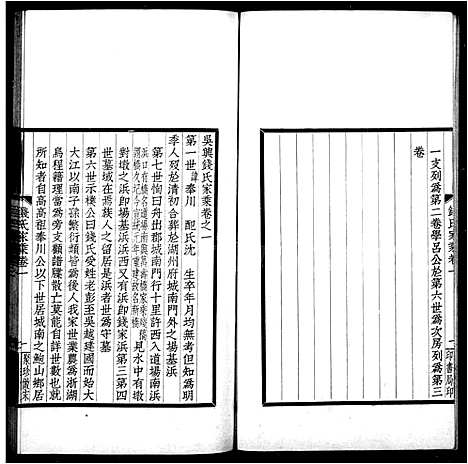 一支列爲第二卷學呂公於第六世爲次房列爲第三
卷
錢氏家乘卷一
印書局印
吳興錢氏家乘卷之一
第一世諱奉川 配氏沈 生卒年月均無者但知爲明
季人歿於清初合葬於湖州府城南門外之場基浜
第七世恂曰舟出郡城南門行十里許西入道場
浜口有橋名道場南與萬壽橋 見水中有墩
對墩之浜即場基浜浜西又有浜即錢家浜第三第四
世墓域在焉族人之留居是浜者世爲守墓
第六世示樸公曰錢氏受姓老彭至吳越建國而始大
大江以南子孫繁衍類皆爲後人我家世業農爲湖
烏程籍理當爲旁支顧譜牒散亡莫能自詳世數也
所知者自高高祖奉川公以下世居城南之鮑山鄉居
錢氏家乘卷一
一
聚珍倣宋